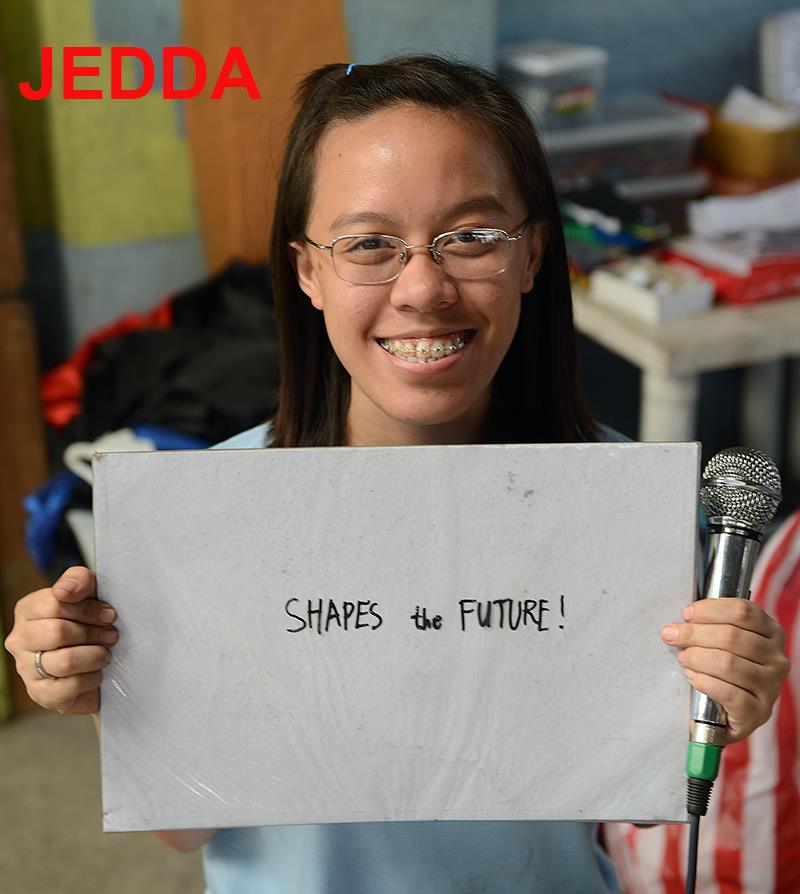 JEDDA
SHAPES the FUTURE!